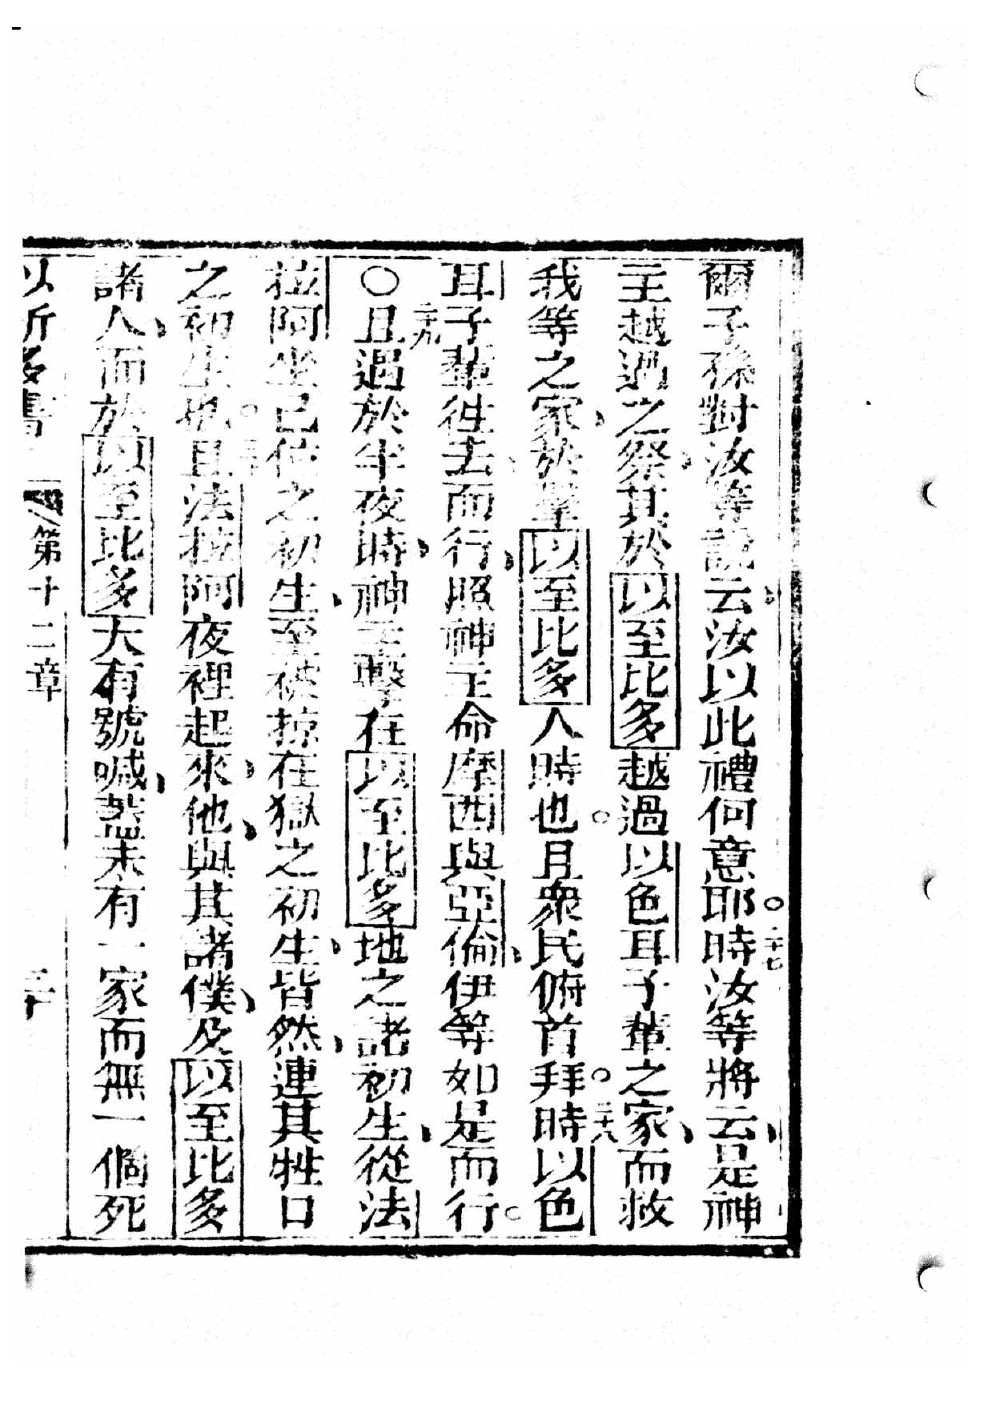 爾子孫對汝等說云汝以此禮何意耶。二十七時汝等將云是神
主越過之祭其於以至比多越過以色耳子輩之家而救
我等之家於擊以至比多人時也。且衆民俯首拜。二十八時以色
耳子輩往去而行照神主命摩西與亞倫伊等如是而行。
〇二十九且過於半夜時神主擊在以至比多地之諸初生從法
拉阿坐己位之初生至被掠在獄之初生皆然連其牲口
之初生也。三十且法拉阿夜裡起來他與其諸僕及以至比多
諸人而於以至比多大有號喊蓋未有一家而無一個死
以所多書 第十二章 三十